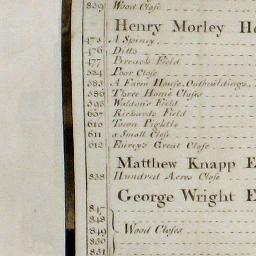 839 Wood Close
Henry Morley
475 A Spinny
476 Ditto
477 Breach Field
584 Poor Close
585 A Farm House, Outbuildings
586 Three Home Closes
593 Waldon's Field
607 Richards Field
610 Town Pightle
611 a Small Close
612 Fairey's Great Close
Matthew Knapp E
838 Hundred Acres Close
George Wright E
847
848
849 Wood Closes
850
851